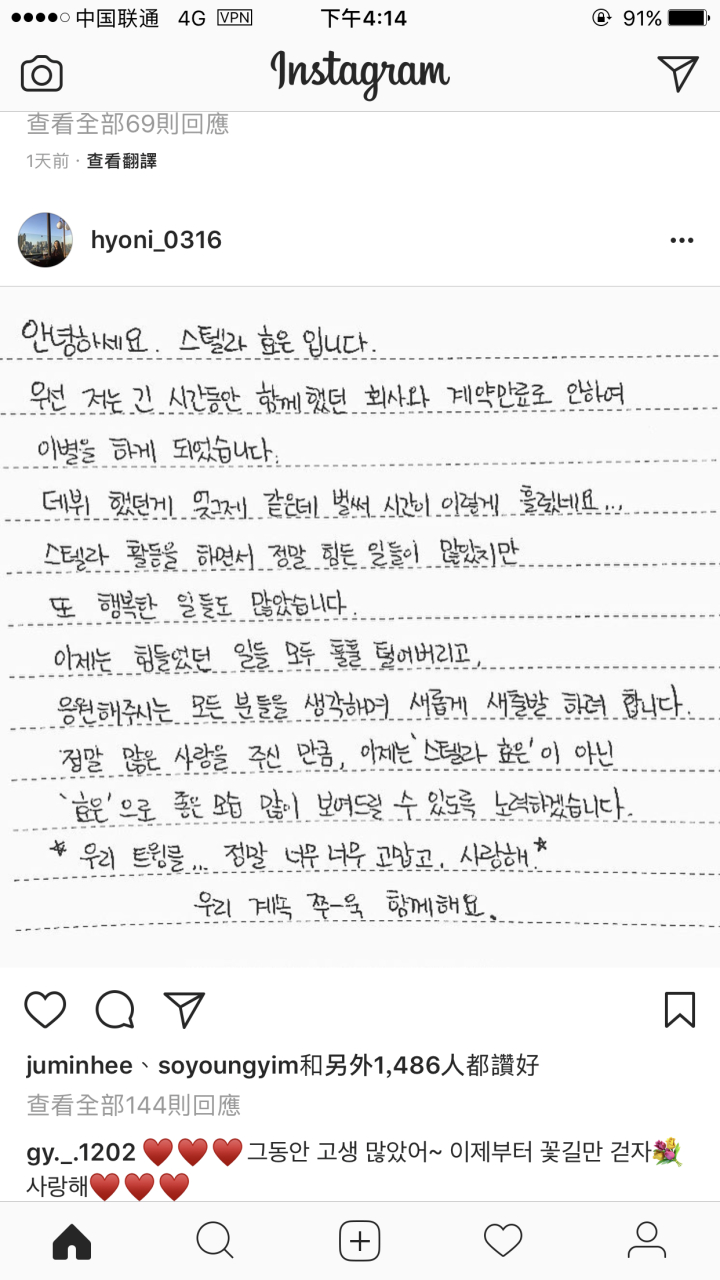 中国联通 4G VPN 下午4:14 91%
Instagram
查看全部69則回應
1天前 · 查看翻譯
hyoni_0316
안녕하세요. 스텔라 효은 입니다.
우선 저는 긴 시간동안 함께했던 회사와 계약만료로 인하여
이별을 하게 되었습니다.
데뷔 했던게 엊그제 같은데 벌써 시간이 이렇게 흘렀네요...
스텔라 활동을 하면서 정말 힘든 일들이 많았지만
또 행복한 일들도 많았습니다.
이제는 힘들었던 일들 모두 훌훌 털어버리고,
응원해주시는 모든 분들을 생각하며 새롭게 새출발 하려 합니다.
정말 많은 사랑을 주신 만큼, 이제는 '스텔라 효은'이 아닌
'효은'으로 좋은 모습 많이 보여드릴 수 있도록 노력하겠습니다.
* 우리 트윙클... 정말 너무너무 고맙고, 사랑해*
우리 계속 쭈-욱 함께해요.
juminhee、soyoungyim和另外1,486人都讚好
查看全部144則回應
gy._.1202 ❤️❤️❤️그동안 고생 많았어~ 이제부터 꽃길만 걷자💐
사랑해❤️❤️❤️